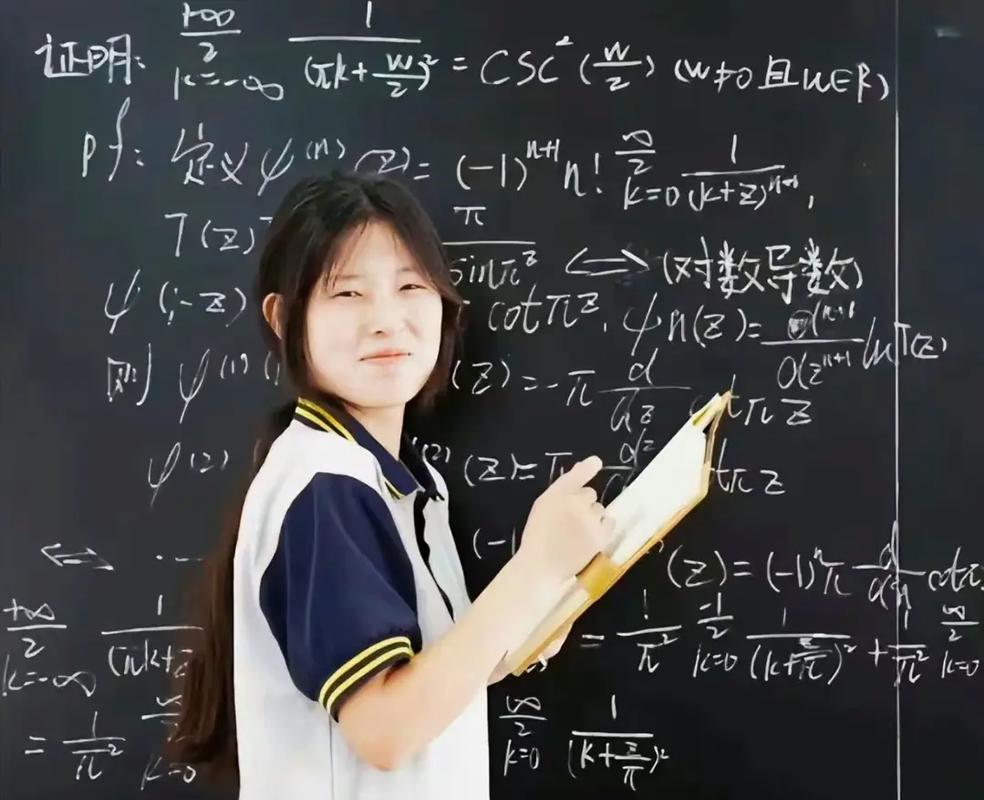 证明: +∞ Σ k=-∞ 1/(πk+w/2)² = csc²(w/2) (w≠0且w∈R)
pf: 定义ψ⁽ⁿ⁾(z)= (-1)ⁿ⁺¹n! ∞ Σ k=0 1/(k+z)ⁿ⁺¹,
T(z) π/sinπz ⟺ (对数导数)
ψ(1-z) cotπz, ψn(z)= d⁽ⁿ⁺¹/dzⁿ⁺¹ lnT(z)
则 ψ⁽¹⁾( (z)=-π d/dz cotπz
ψ⁽²⁾ ⁽²⁾(z)= π d² tπz
⟺ ... (-1) (z)=(-1)ⁿπ d/dzⁿ cotπ
+∞ Σ k=-∞ 1/(πk+ = 1/π² -1 Σ k=0 1/(k+ /π)² + 1/π² ∞ Σ k=0
= 1/π² ∞ Σ k=0 ∞ Σ k=0 1/(k+ /π)²